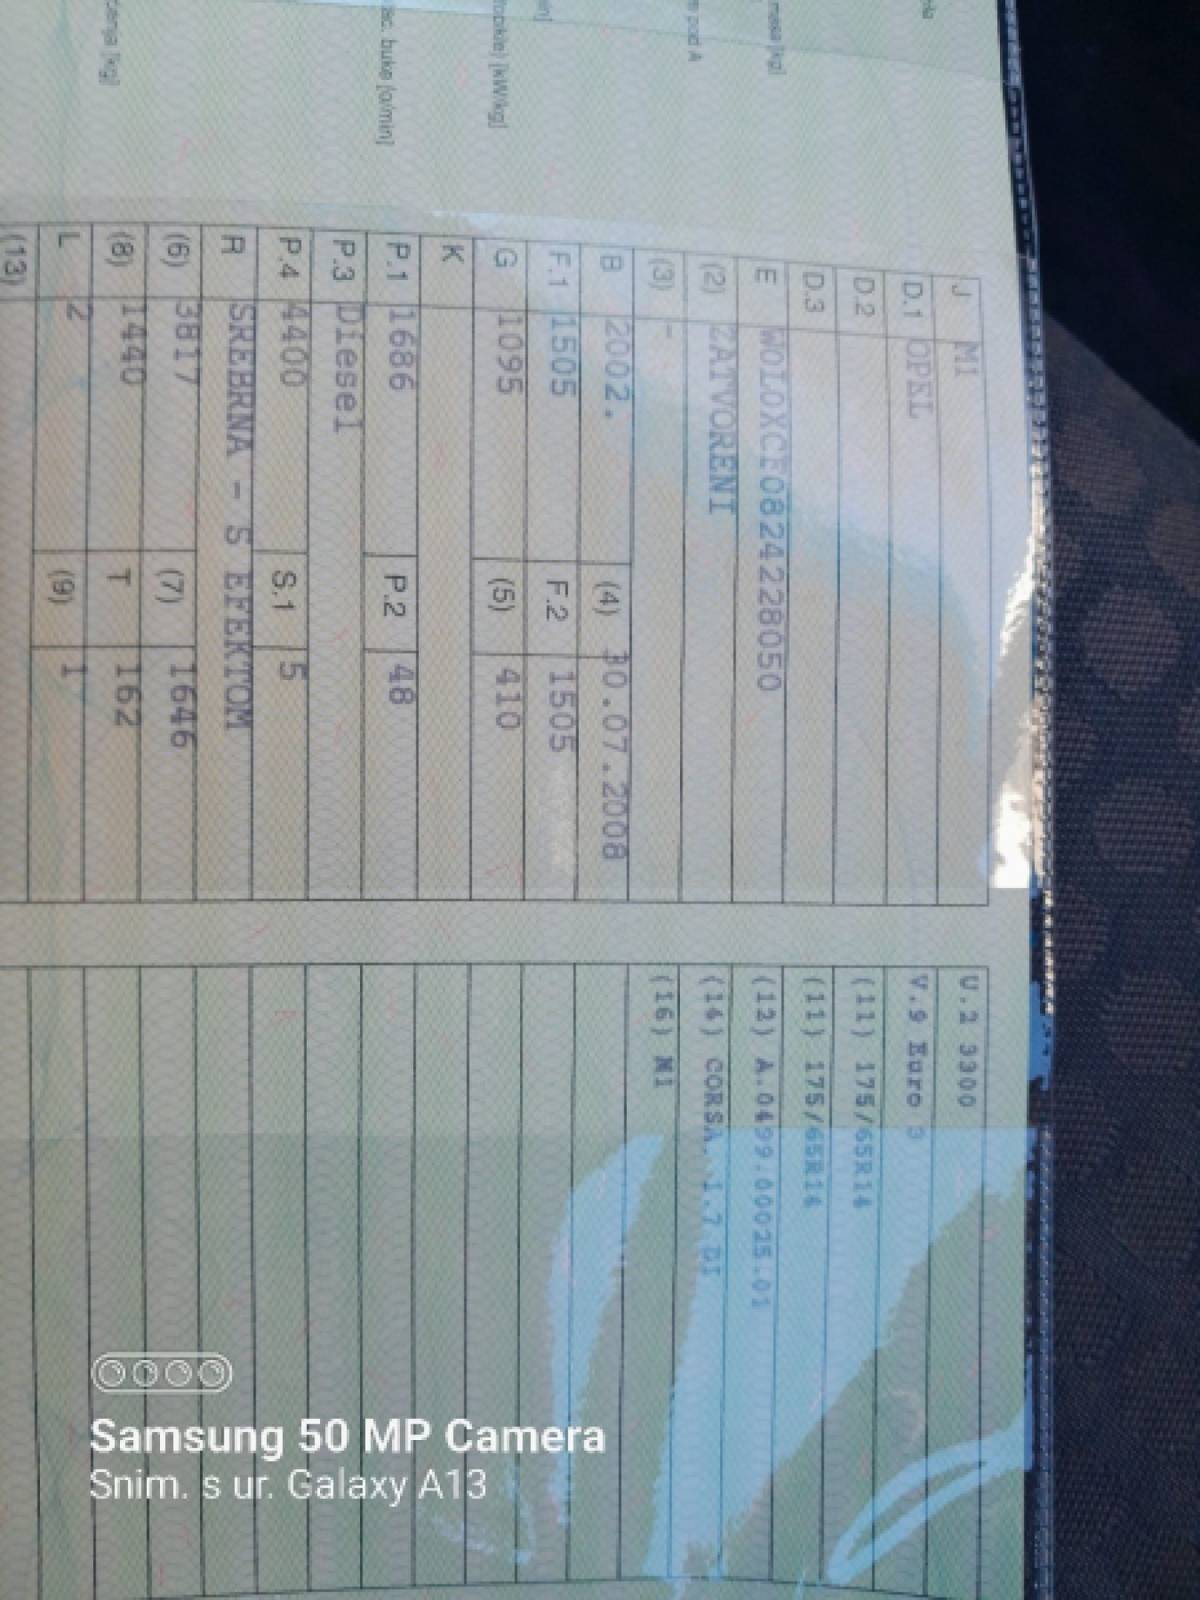 J M1
D.1 OPEL
D.2
D.3
E WOLOXCF0824228050
(2) ZATVORENI
(3) -
B 2002. (4) 30.07.2008
F.1 1505 F.2 1505
G 1095 (5) 410
K
P.1 1686 P.2 48
P.3 Diesel
P.4 4400 S.1 5
R SREBRNA - S EFEKTOM
(6) 3817 (7) 1646
(8) 1440 T 162
L 2 (9) 1
(13)
masa [kg]
pod A
[kW/kg]
buke [o/min]
[kg]
U.2 3300
V.9 Euro 3
(11) 175/65R14
(11) 175/65R14
(12) A.0499.00025.01
(14) CORSA 1.7 DI
(16) M1
Samsung 50 MP Camera
Snim. s ur. Galaxy A13